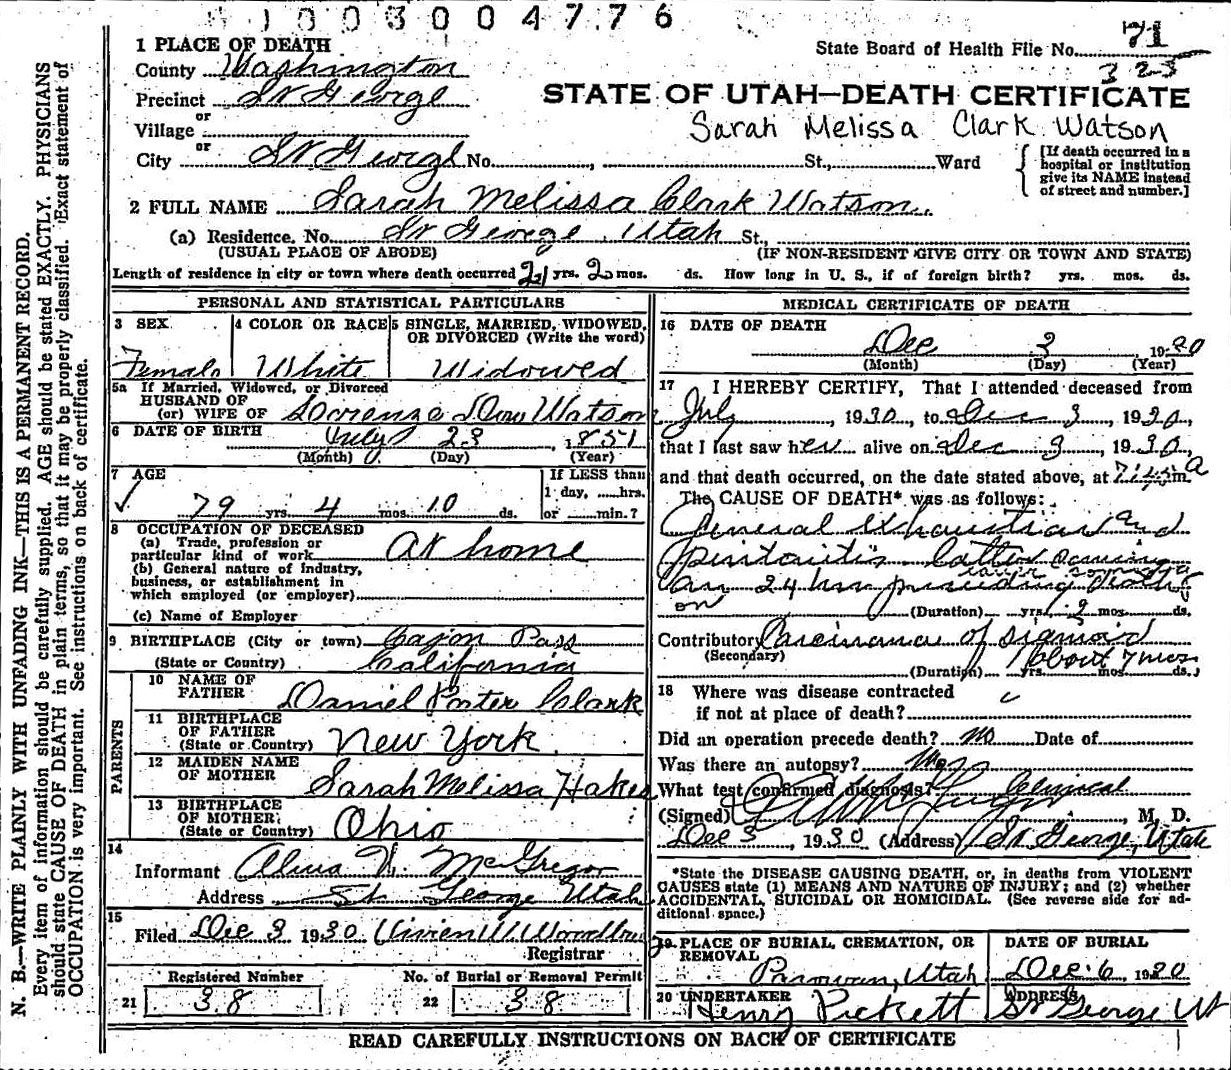 1003004776
1 PLACE OF DEATH
State Board of Health File No. 71
County Washington
323
Precinct St George
STATE OF UTAH—DEATH CERTIFICATE
or
Village
Sarah Melissa Clark Watson
or
City St George No. St., Ward
[If death occurred in a hospital or institution give its NAME instead of street and number.]
2 FULL NAME Sarah Melissa Clark Watson.
(a) Residence. No. St George, Utah St.,
(USUAL PLACE OF ABODE) (IF NON-RESIDENT GIVE CITY OR TOWN AND STATE)
Length of residence in city or town where death occurred 21 yrs. 2 mos. ds. How long in U. S., if of foreign birth? yrs. mos. ds.
PERSONAL AND STATISTICAL PARTICULARS
3 SEX 4 COLOR OR RACE 5 SINGLE, MARRIED, WIDOWED, OR DIVORCED (Write the word)
Female White Widowed
5a If Married, Widowed, or Divorced
HUSBAND OF
(or) WIFE OF Lorenzo Dow Watson
6 DATE OF BIRTH July 23 1851
(Month) (Day) (Year)
7 AGE
If LESS than
1 day, hrs.
79 yrs. 4 mos. 10 ds. or min.?
8 OCCUPATION OF DECEASED
(a) Trade, profession or
particular kind of work At home
(b) General nature of industry,
business, or establishment in
which employed (or employer)
(c) Name of Employer
9 BIRTHPLACE (City or town) Cajon Pass
(State or Country) California
PARENTS
10 NAME OF
FATHER Daniel Porter Clark
11 BIRTHPLACE
OF FATHER
(State or Country) New York.
12 MAIDEN NAME
OF MOTHER Sarah Melissa Hakes
13 BIRTHPLACE
OF MOTHER
(State or Country) Ohio
14
Informant McGregor
Address St. George Utah
15
Filed Dec 3 1930 Vivien W. Woodbury
Registrar
Registered Number No. of Burial or Removal Permit
21 38 22 38
MEDICAL CERTIFICATE OF DEATH
16 DATE OF DEATH
Dec 3 1930
(Month) (Day) (Year)
17 I HEREBY CERTIFY, That I attended deceased from
July, 1930, to Dec 3, 1930,
that I last saw her alive on Dec 3, 1930,
and that death occurred, on the date stated above, at m.
The CAUSE OF DEATH* was as follows:
General Exhaustion and
peritonitis latter
24 hrs death
on
(Duration) yrs. mos. ds.
Contributory Carcinoma of sigmoid
(Secondary)
About 7 mos
(Duration) yrs. mos. ds.
18 Where was disease contracted
if not at place of death?
Did an operation precede death? No Date of
Was there an autopsy? No
What test confirmed diagnosis? Clinical
(Signed) M. D.
Dec 3, 1930 (Address) St George, Utah
*State the DISEASE CAUSING DEATH, or, in deaths from VIOLENT
CAUSES state (1) MEANS AND NATURE OF INJURY; and (2) whether
ACCIDENTAL, SUICIDAL OR HOMICIDAL. (See reverse side for ad-
ditional space.)
19 PLACE OF BURIAL, CREMATION, OR
REMOVAL
DATE OF BURIAL
Parowan, Utah Dec. 6 1930
20 UNDERTAKER ADDRESS
Henry Pickett St George Ut
READ CAREFULLY INSTRUCTIONS ON BACK OF CERTIFICATE
N. B.—WRITE PLAINLY WITH UNFADING INK—THIS IS A PERMANENT RECORD.
Every item of information should be carefully supplied. AGE should be stated EXACTLY. PHYSICIANS
should state CAUSE OF DEATH in plain terms, so that it may be properly classified. Exact statement of
OCCUPATION is very important. See instructions on back of certificate.